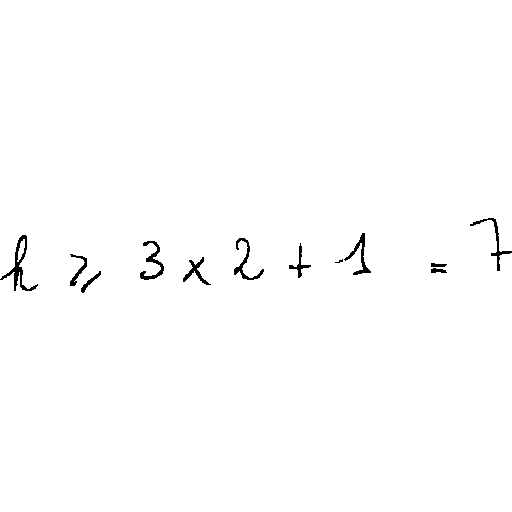 h ⩾ 3 × 2 + 1 = 7